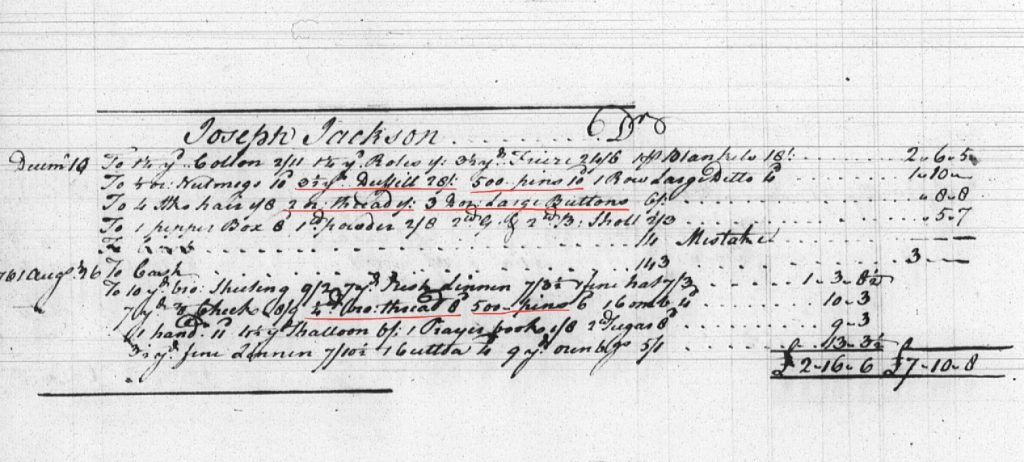 Joseph Jackson ...... Dr
Decem 19 To 1½ yd Cotton 2/11 1½ yd 3½ yd Frieze 24/6 1 pr Blankets 18/ ........ 2-6-5
To Nutmegs 10 3½ yd Duffill 28/ 500 pins 10 1 Row Large Ditto ...... 1-10-
To 4 Sks hair 4/8 2 oz thread 3 Doz Large Buttons 6/ ........ " 8-8
To 1 pepper Box 8 1 lb powder 2/8 2 lb & 2 lb B: Shott 2/3 ........ " 5-7
14 Mistake ........
To Cash ........ 143 ........ 3
1761 Augst 26 To 10 yd bro: Sheeting 9/2 7 yd Irish Linnen 7/3½ 1 fine hat 7/3 1-3-8½
7 yd ¾ Check 8/9 bro: thread 8 500 pins 6 1 Comb ...... 10-3
1 hand: 11 yd Shalloon 6/: 1 Prayer book 1/8 2 lb Sugar 8 ...... 9-3
3½ yd fine Linnen 7/10½ 9 yd 5/1 ........ 13-3½
£2-16-6 £7-10-8